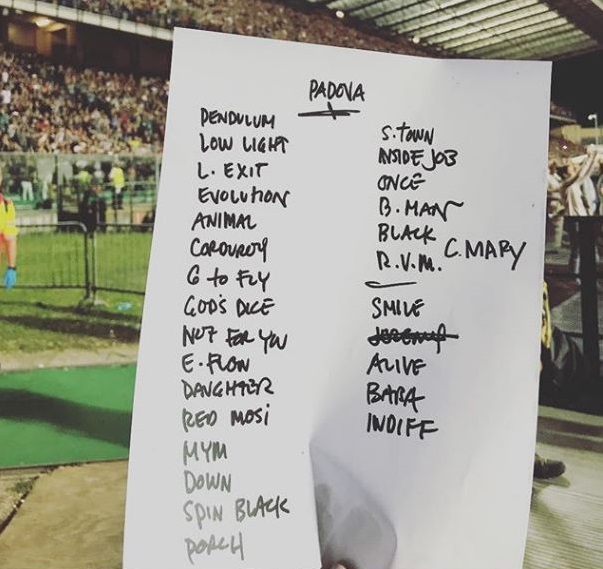 PADOVA
PENDULUM
LOW LIGHT
L. EXIT
EVOLUTION
ANIMAL
CORDUROY
G to FLY
GOD'S DICE
NOT FOR YOU
E. FLOW
DAUGHTER
RED MOSi
MYM
DOWN
SPIN BLACK
PORCH
S. TOWN
INSIDE JOB
ONCE
B. MAN
BLACK
R.V.M. C. MARY
SMILE
JEREMY
ALIVE
BABA
INDIFF